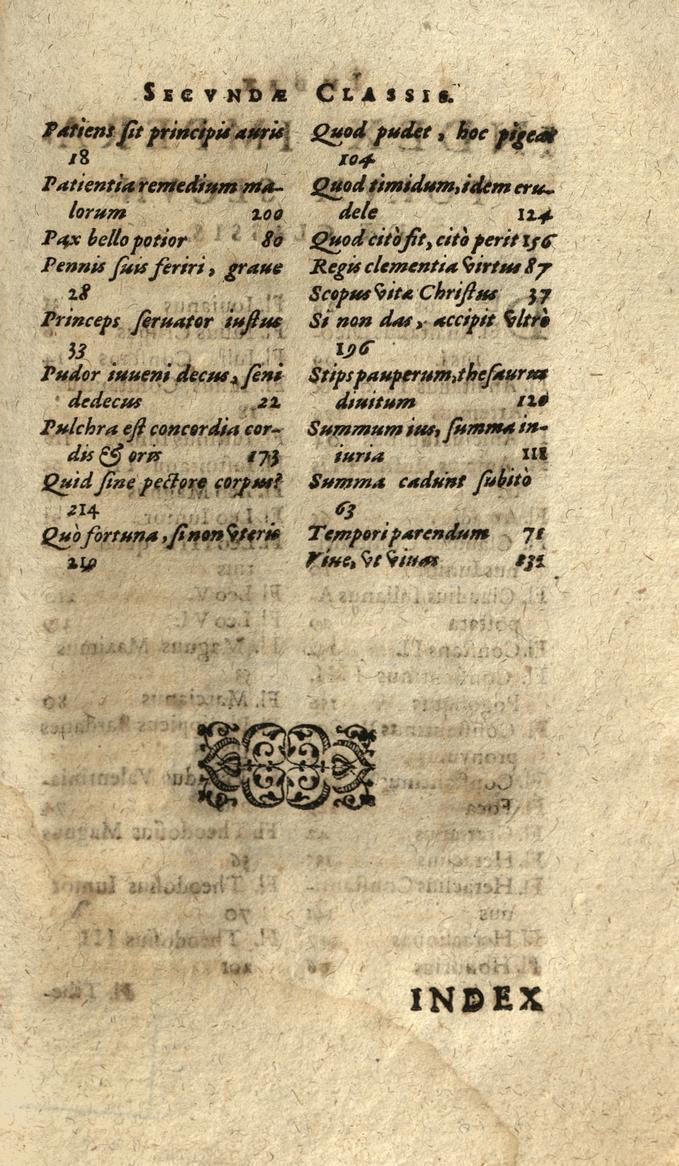 SECVNDÆ CLASSIS.
Patiens sit principis auris
18
Patientia remedium ma-
lorum 200
Pax bello potior 80
Pennis suis feriri, graue
28
Princeps seruator iustus
33
Pudor iuueni decus, seni
dedecus 22
Pulchra est concordia cor-
dis & oris 173
Quid sine pectore corpus?
214
Quò fortuna, si non vteris
210
Quod pudet, hoc pigeat
104
Quod timidum, idem cru-
dele 124
Quod citò fit, citò perit 156
Regis clementia virtus 87
Scopus vitæ Christus 37
Si non das, accipit vltrò
196
Stips pauperum, thesaurus
diuitum 120
Summum ius, summa in-
iuria 118
Summa cadunt subitò
63
Tempori parendum 71
Viue, vt viuas 132
INDEX